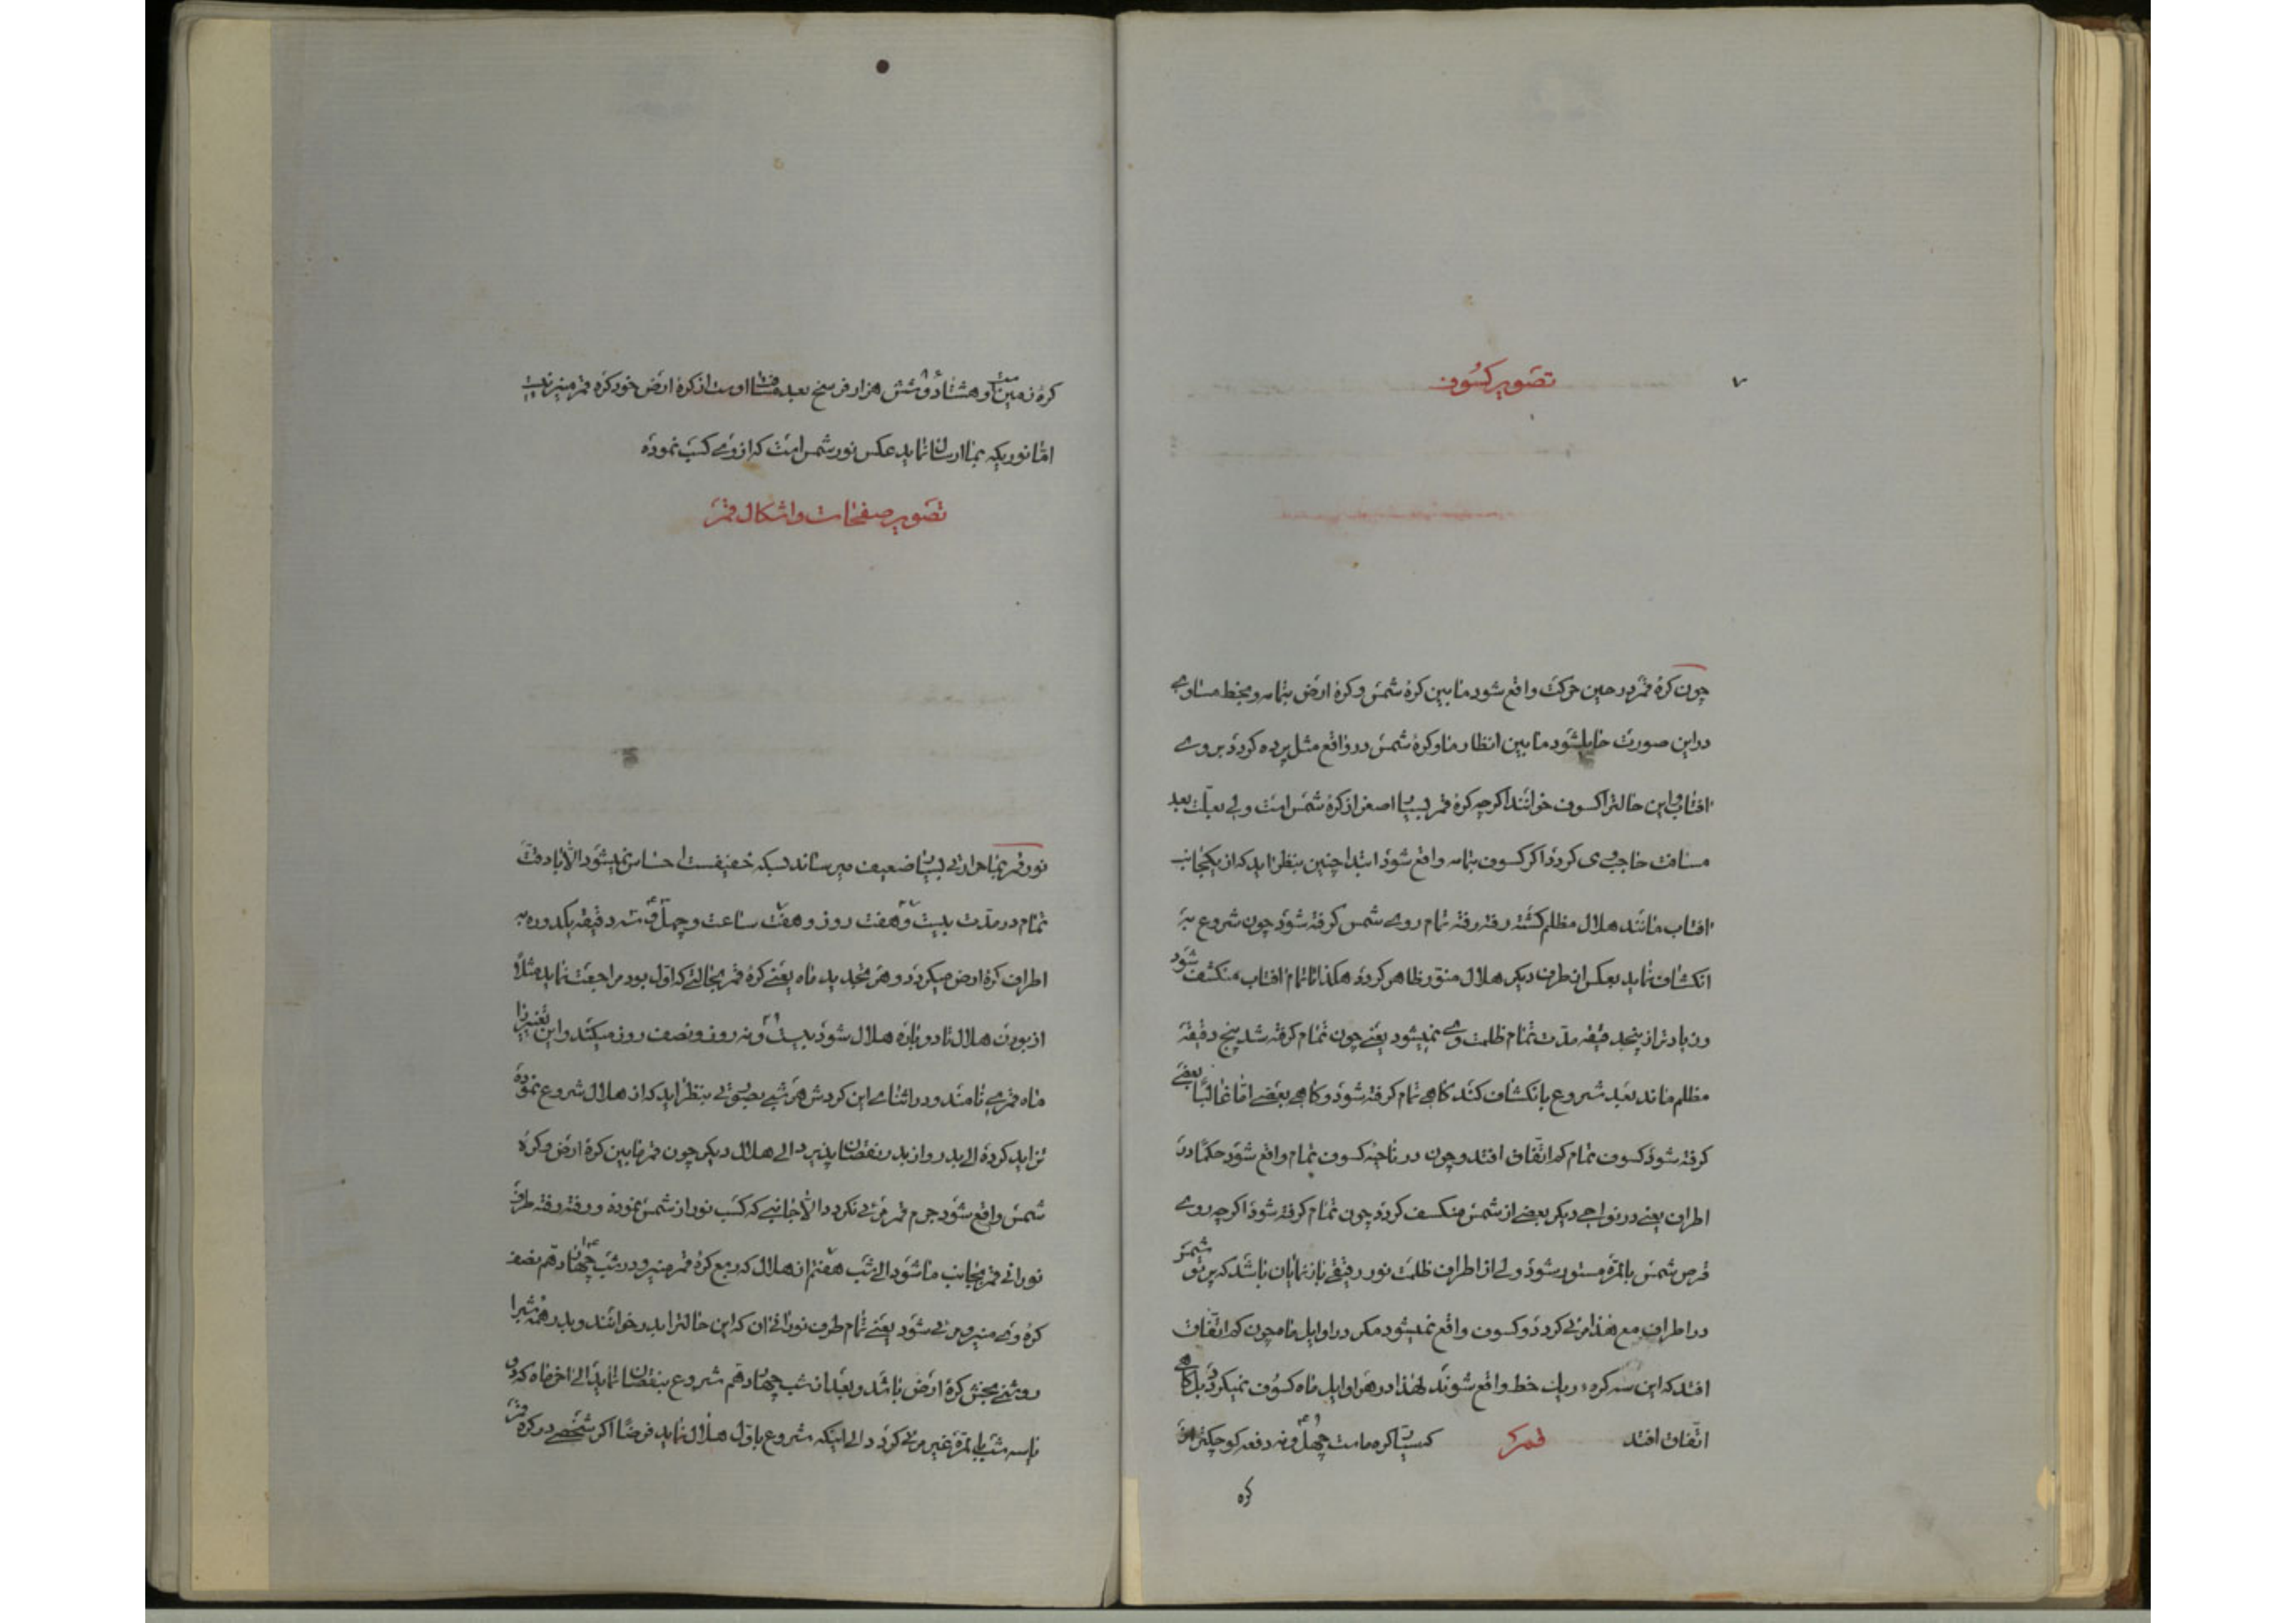 ۷
تصویر کسوف
چون کرۀ قمر در حین حرکت واقع شود مابین کرۀ شمس و کرۀ ارض بتمامه و بخط مساوی
در این صورت حایل شود مابین انظار ما و کرۀ شمس در واقع مثل پرده کردد بر روی
افتاب و این حالترا کسوف خوانند اکرچه کرۀ قمر بسیار اصغر از کرۀ شمس است ولی بعلت بعد
مسافت حاجب وی کردد اکر کسوف بتمامه واقع شود ابتدا چنین بنظر اید که از یکجانب
افتاب مانند هلال مظلم کشته رفته رفته تمام روی شمس کرفته شود چون شروع به
انکشاف نماید بعکس از طرف دیکر هلال منور ظاهر کردد هکذا تا تمام افتاب منکشف شود
و زیادتر از پنجدقیقه مدت تمام ظلمت وی نمیشود یعنی چون تمام کرفته شد پنج دقیقه
مظلم ماند بعد شروع بانکشاف کند کاهی تمام کرفته شود و کاهی بعضی اما غالبًا بعضی
کرفته شود کسوف تمام کم اتفاق افتد و چون در ناحیۀ کسوف تمام واقع شود حکمًا در
اطراف یعنی در نواحی دیکر بعضی از شمس منکسف کردد چون تمام کرفته شود اکرچه روی
قرص شمس بالمره مستور شود ولی از اطراف ظلمت نور رقیقی باز نمایان باشد که پرتو شمس
در اطراف مع هذا مرئی کردد و کسوف واقع نمیشود مکر در اوایل ماه چون کم اتفاق
افتد که این سه کره در یک خط واقع شوند لهذا در هر اوایل ماه کسوف نمیکردد بل کاهی
اتفاق افتد قمر که سیار کره ماست چهل و نه دفعه کوچکتر از
کره
کرۀ زمین است و هشتاد و شش هزار فرسخ بعد مسافت اوست از کرۀ ارض خود کره قمر منیر نیست
اما نوریکه بما ارسال نماید عکس نور شمس است که از وی کسب نموده
تصویر صفحات و اشکال قمر
نور قمر بما حرارتی بسیار ضعیف میرساند بسکه خفیفست احساس نمیشود الّا با دقت
تمام در مدت بیست و هفت روز و هفت ساعت و چهل و سه دقیقه یکدوره به
اطراف کرۀ ارض میکردد و هر تجدید ماه یعنی کرۀ قمر بحالتی که اول بود مراجعت نماید مثلاً
از بودن هلال تا دوباره هلال شود بیست و نه روز و نصف روز میکشد و این تغییر را
ماه قمری نامند و در اثنای این کردش هر شبی بصورتی بنظر اید که از هلال شروع نموده
تزاید کرده الی بدر و از بدر بنقصان پذیرد الی هلال دیکر چون قمر مابین کرۀ ارض و کرۀ
شمس واقع شود جرم قمر مرئی نکردد الّا جانبی که کسب نور از شمس نموده و رفته رفته طرف
نورانی قمر بجانب ما شود الی شب هفتم از هلال که ربع کرۀ قمر منیر و در شب چهاردهم نصف
کره وی منیر و مرئی شود یعنی تمام طرف نورانی ان که این حالترا بدر خوانند و بدر همه شبرا
روشنی بخش کرۀ ارض باشد و بعد از شب چهاردهم شروع بنقصان نماید الی اخر ماه که دو
یا سه شب بالمره غیر مرئی کردد الی اینکه شروع باول هلال نماید فرضًا اکر شخصی در کرۀ قمر